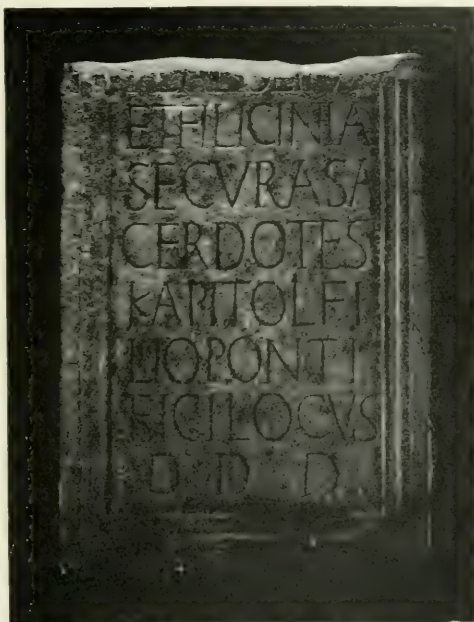 ET LICINIA
SECVRA SA
CERDOTES
KAPITOL FI
LIO PONTI
FICI LOCVS
D D D